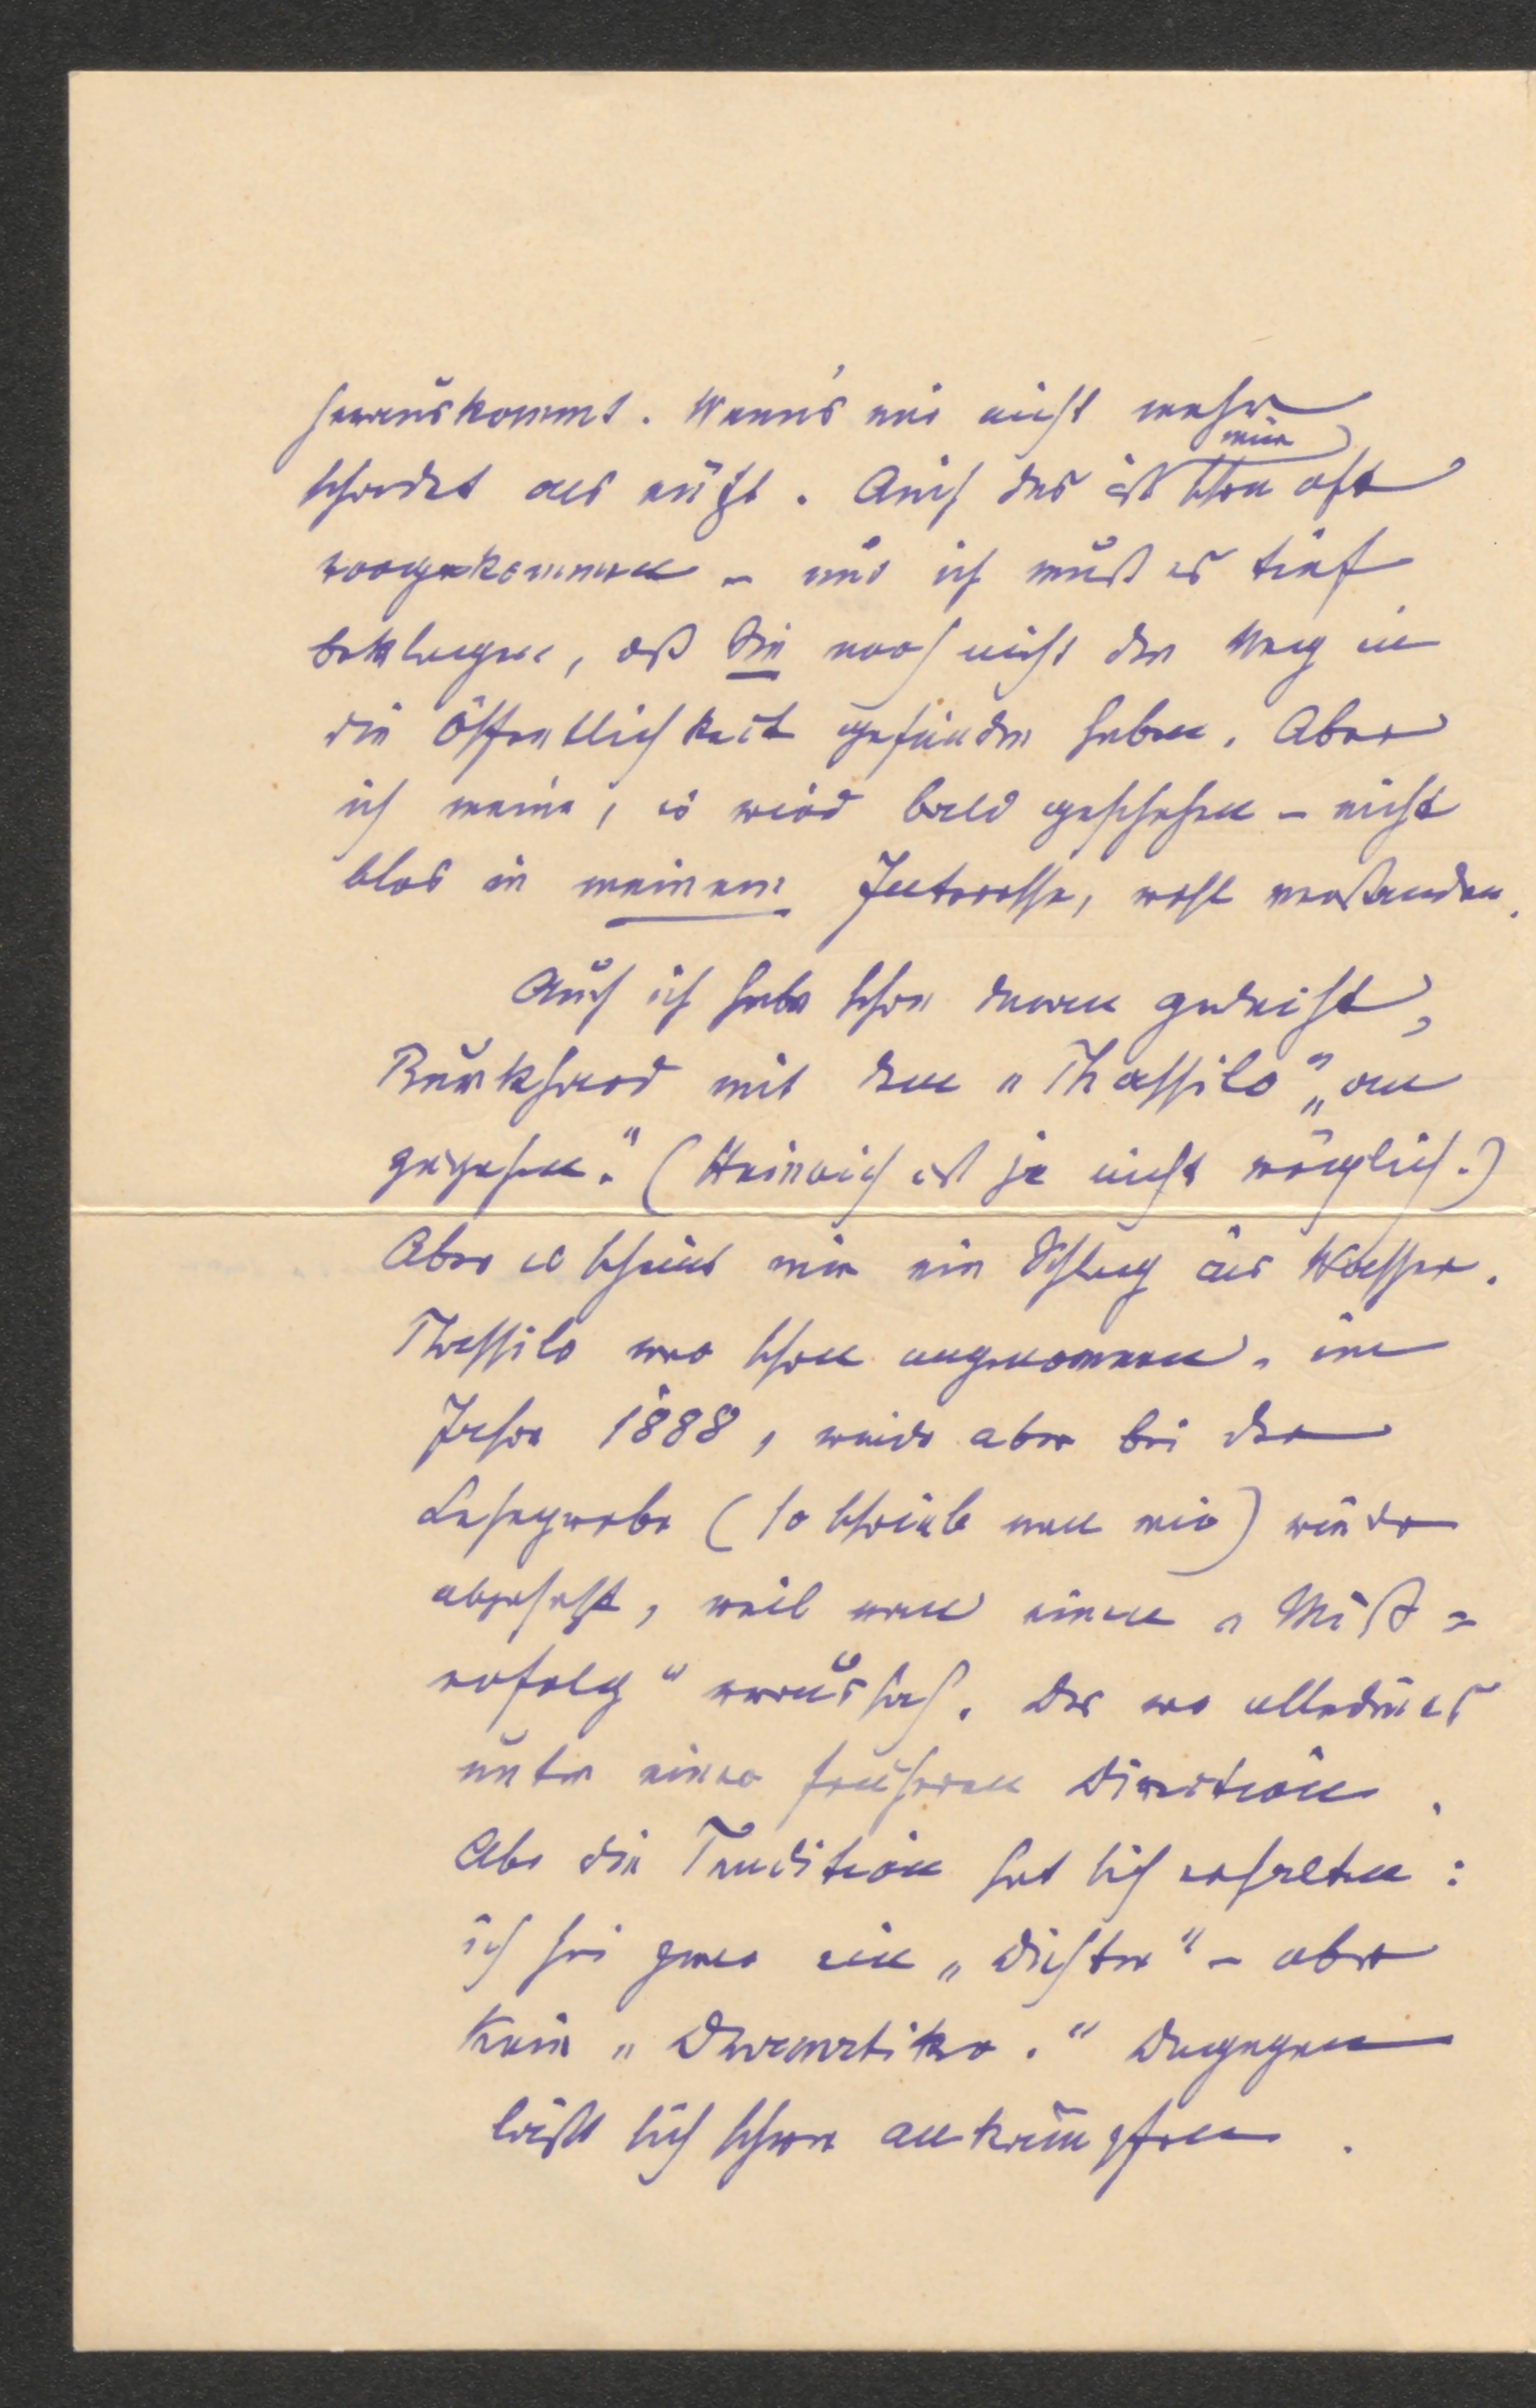 herauskommt. Wenn's nur nicht mehr
schadet als nützt. Auch das ist mir schon oft
vorgekommen – und ich muß es tief
beklagen, daß Sie noch nicht den Weg in
die Öffentlichkeit gefunden haben. Aber
ich meine, es wird bald geschehen – nicht
blos in meinem Interesse, wohl verstanden.
Auch ich habe schon daran gedacht,
Burkhard mit dem „Thassilo" „an
zugehen." (Heinrich ist ja nicht möglich.)
Aber es scheint mir ein Schlag ins Wasser.
Thassilo war schon angenommen, im
Jahre 1888, wurde aber bei der
Leseprobe (so schrieb man mir) wieder
abgesetzt, weil man einen „Miß=
erfolg" voraussah. Das war allerdings
unter einer früheren Direction.
Aber die Tradition hat sich erhalten:
ich sei zwar ein „Dichter" – aber
kein „Dramatiker." Dagegen
läßt sich schwer ankämpfen.